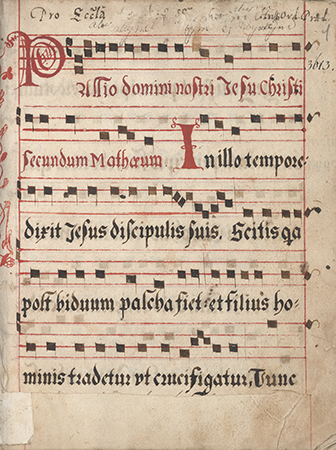 Pro Eccła
3013.
PAssio domini nostri Jesu Christi
secundum Mathæum. In illo tempore
dixit Jesus discipulis suis. Scitis qa
post biduum pascha fiet: et filius ho-
minis tradetur vt crucifigatur, Tunc